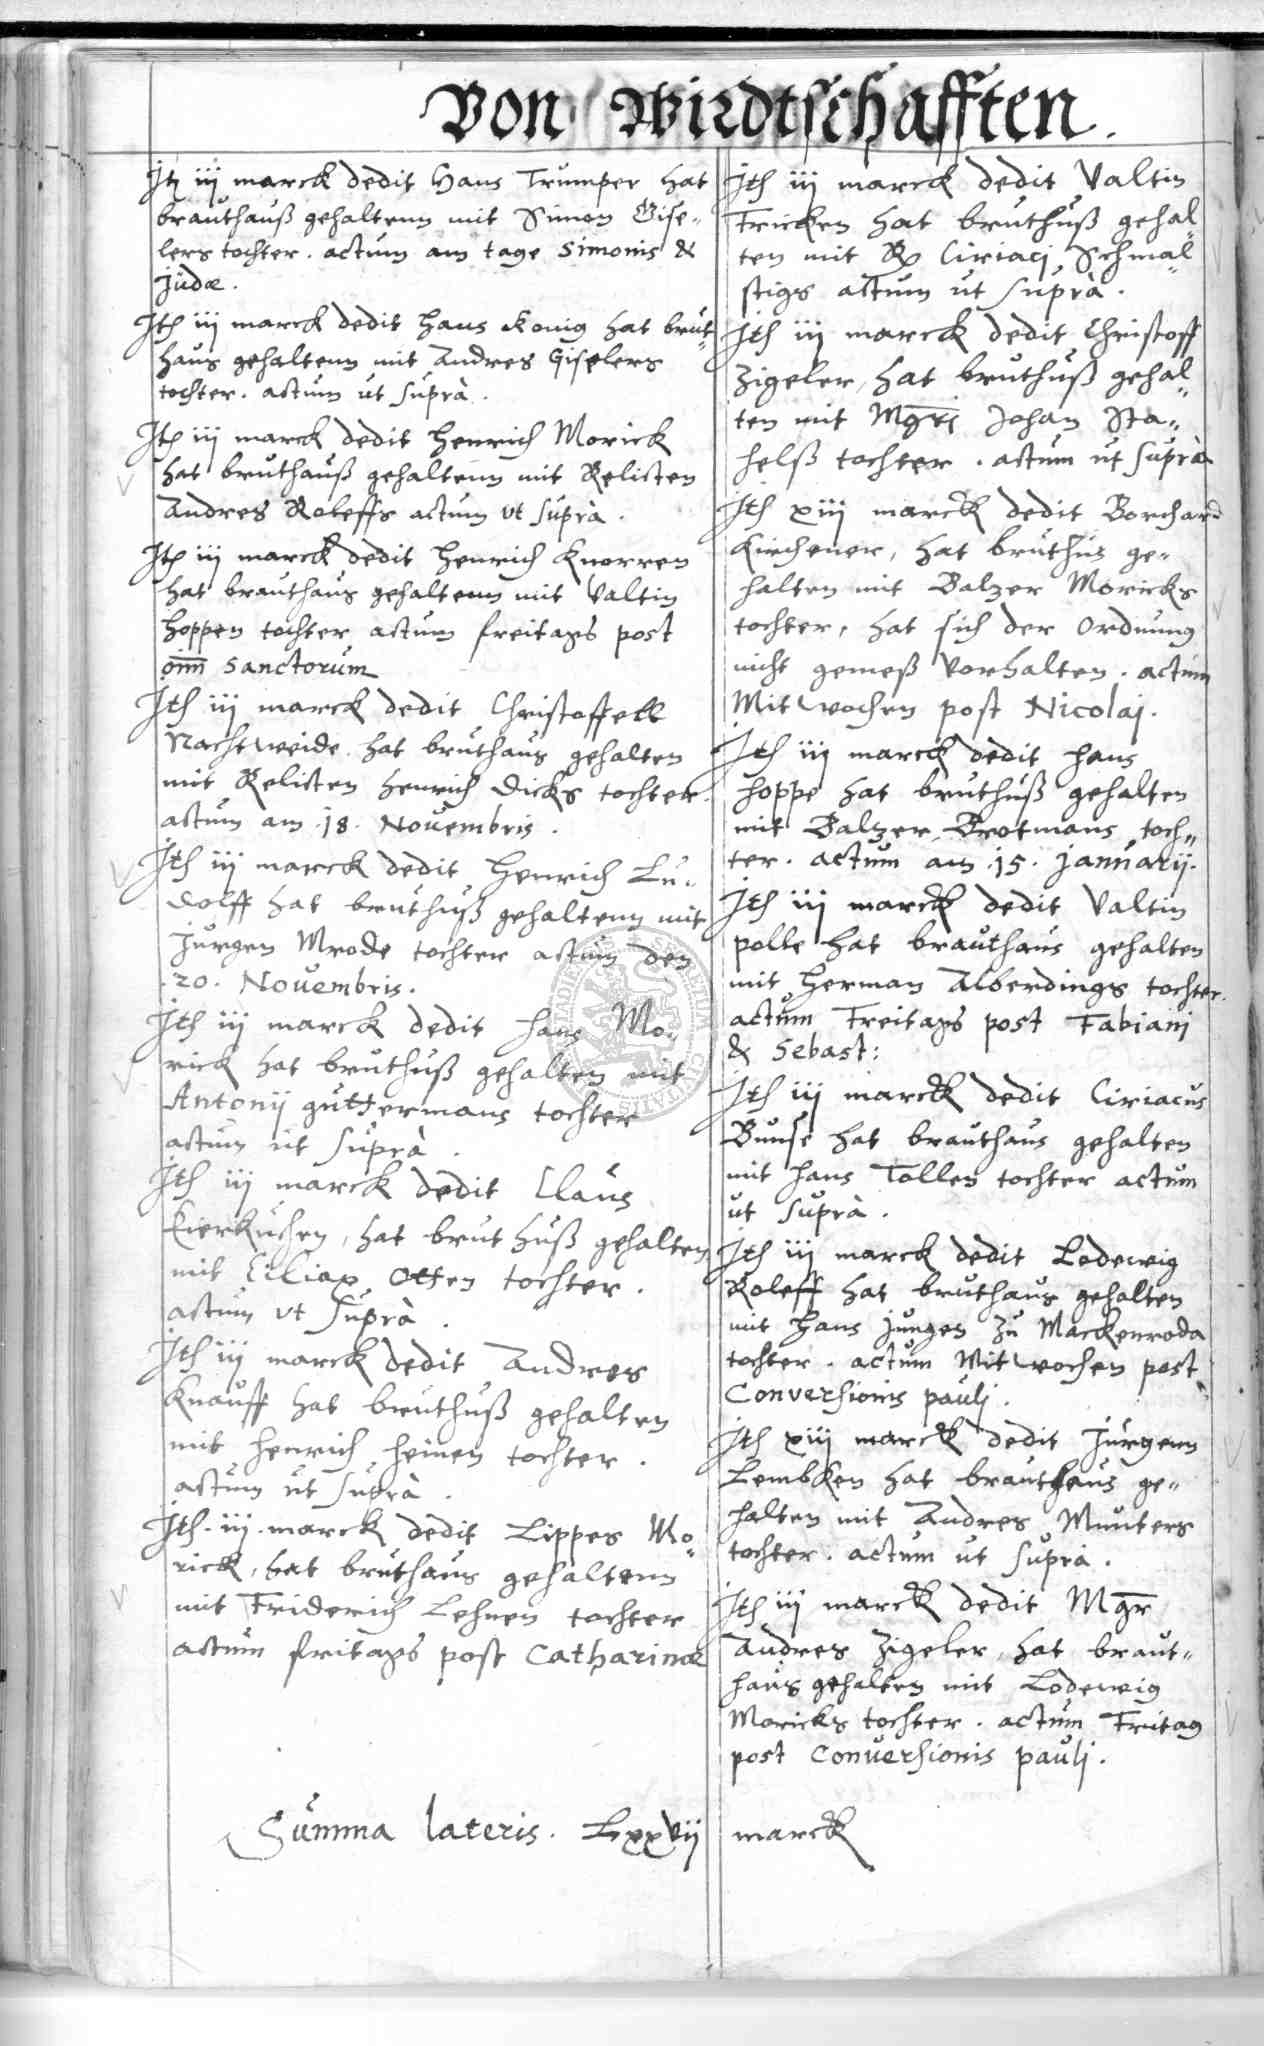 Von Wirdtschafften.
Itz iij marck dedit Hans Trumper hat
brauthauß gehaltenn mit Simon Gise„
lers tochter. actum am tage Simonis &
Judæ.
Ith iij marck dedit Hans Konig hat brut„
haus gehaltenn mit Andres Giselers
tochter. actum ut suprà.
Ith iij marck dedit Henrich Morick
hat bruthauß gehaltenn mit Relicten
Andres Roleffs actum vt suprà.
Ith iij marck dedit Henrich Knorren
hat brauthaus gehaltenn mit Valtin
Hoppen tochter actum freitags post
oim Sanctorum
Ith iij marck dedit Christoffell
Nachtweide hat bruthaus gehalten
mit Relicten Henrich Dicks tochter.
actum am .18. Novembris.
Ith iij marck dedit Henrich Lu„
dolff hat bruthuß gehaltenn mit
Jurgen Wrode tochter actum den
.20. Novembris.
Ith iij marck dedit Hans Mo„
rick hat bruthuß gehalten mit
Antonij guttermans tochter
actum ut suprà.
Ith iij marck dedit Claus
Eierkuchen, hat brut huß gehalten
mit Ciliax Otten tochter.
actum vt suprà.
Ith iij marck dedit Andres
Knauff hat bruthuß gehalten
mit Henrich Heinen tochter.
actum ut suprà.
Ith. iij. marck dedit Lippes Mo„
rick, hat bruthaus gehaltenn
mit Friderich Lehnen tochter
actum fritags post Catharinæ
Ith iij marck dedit Valtin
Fricken hat bruthuß gehal„
ten mit Ciriacj Schmal„
stigs actum ut suprà.
Ith iij marck dedit Christoff
Zigeler, hat bruthuß gehal„
ten mit Mgrj Johan Sta„
helß tochter. actum ut suprà
Ith xiij marck dedit Borchard
Kirchener, hat bruthus ge„
halten mit Balzer Moricks
tochter, hat sich der Ordnung
nicht gemeß vorhalten. actum
Mitwochen post Nicolaj.
Ith iij marck dedit Hans
Hoppe hat bruthuß gehalten
mit Balzer Brotmans toch„
ter. actum am .15. Januarij.
Ith iij marck dedit Valtin
polle hat brauthaus gehalten
mit Herman Alberdings tochter.
actum Freitags post Fabianj
& Sebast:
Ith iij marck dedit Ciriacus
Bunse hat brauthaus gehalten
mit Hans Tollen tochter actum
ut suprà.
Ith iij marck dedit Lodewig
Roleff hat bruthaus gehalten
mit Hans Jungen zu Mackenroda
tochter. actum Mitwochen post
Conversionis paulj.
Ith xiij marck dedit Jurgenn
Lembken hat brauthaus ge„
halten mit Andres Munters
tochter. actum ut suprà.
Ith iij marck dedit Mgr
Andres Zigeler, hat braut„
haus gehalten mit Lodewig
Moricks tochter. actum Fritag
post Conversionis paulj.
Summa lateris. Lxxvij marck